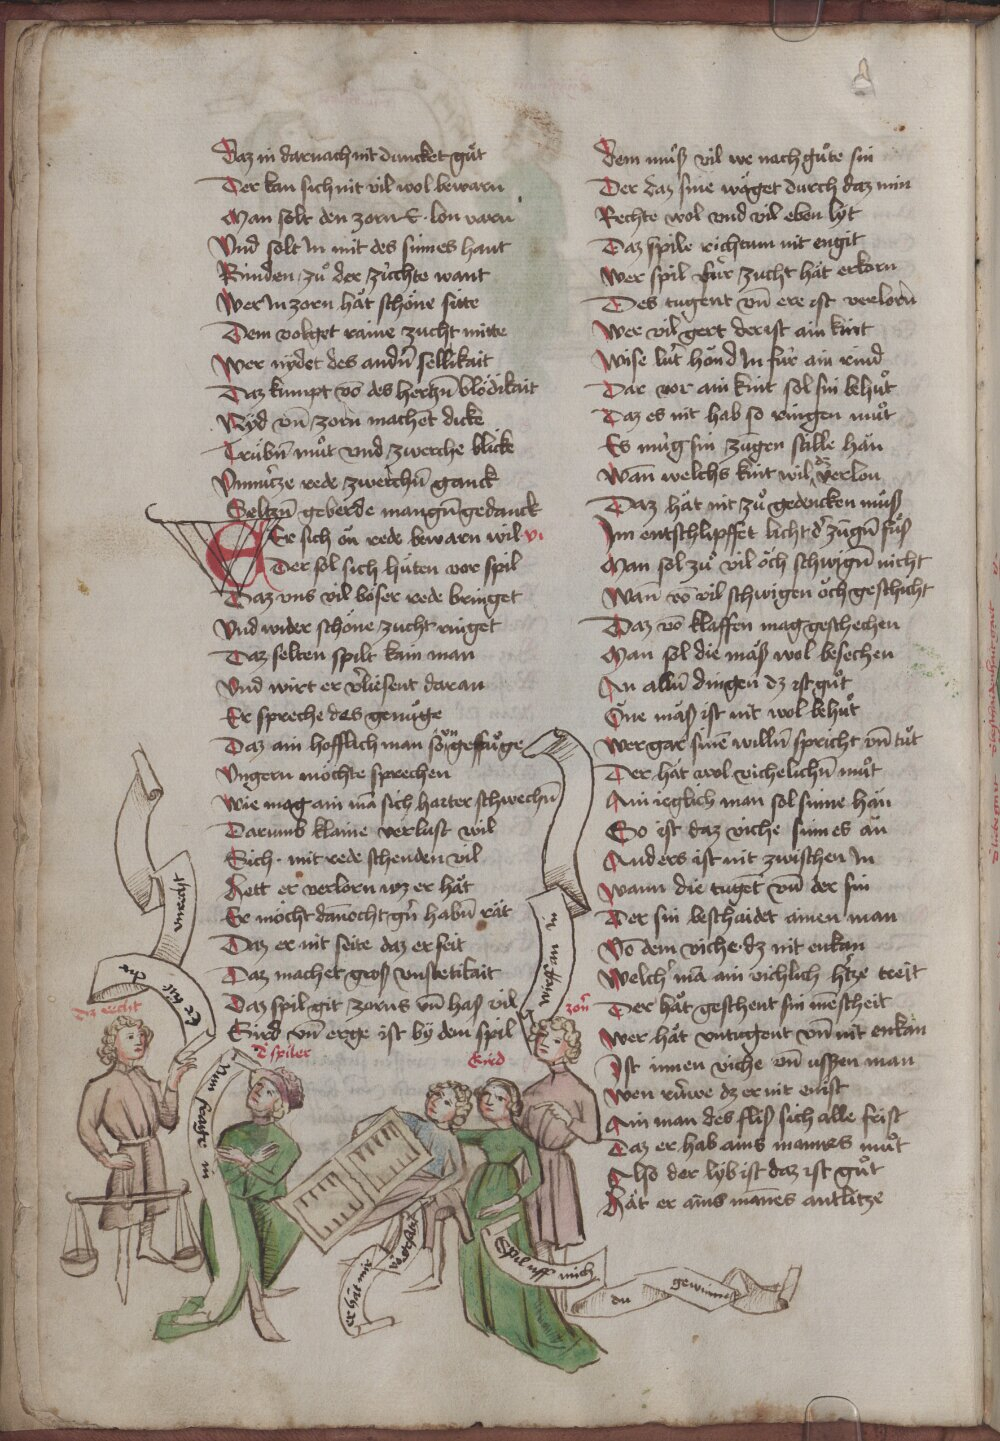 Daz in darnach nit duncket guͦt
Der kan sich nit vil wol bewarn
Man solt den zorn E. lon varn
Vnd solt In mit des sinnes hant
Binden zuͦ der zuchte want
Wer In zorn haͮt schoͤne sitte
Dem volget raine zucht mitte
Wer nydet des andn̄ sellikait
Daz kumpt vō des herczn̄ bloͤdikait
Nyd vn̄ zorn machet dicke
Truͤbn̄ muͦt vnd zwerche blicke
Vnnuͤtze rede zwerchn̄ ganck
Seltzn̄ geberde mangn̄ gedanck
Wer sich on rede bewarn wil vj
Der sol sich huͤten vor spil
Daz vns vil boͤser rede bringet
Vnd wider schoͤne zucht ringet
Daz selten spilt kain man
Vnd wirt er v̄liesent daran
Er spreche des genuͤge
Daz ain hofflich man so vngefuͦge
Vngern moͤchte sprechen
Wie mag ain mā sich harter schwechn̄
Darumb klaine verlust wil
Sich mit rede schenden vil
Hett er verlorn wz er haͮt
Er moͤcht dannocht gn̄ habn̄ raͮt
Daz er nit seite daz er seit
Daz machet groß vnstetikait
Daz spil git zorns vn̄ haß vil
Gird vn̄ erge ist by dem spil
Dem muͦß vil we nach guͦte sin
Der daz sine waͤget durch daz min
Rechte wol vnd vil eben lyt
Daz spile richtum nit engit
Wer spil fuͤr zucht haͮt erkorn
Des tugent vn̄ ere ist verlorn
Wer vil gert der ist ain kint
Wise luͤt hoͤnd In fuͤr ain rind
Dar vor ain kint sol sin behuͦt
Daz es nit hab so ringen muͦt
Es mug sin zungen stille haͮn
Wan̄ welchs kint wil dz v̄erlon
Daz haͮt nit zuͦ gedencken muͦß
Im entschlipffet licht d' zungn̄ fuͦß
Man sol zuͦ vil och schwign̄ nicht
Wan̄ vō vil schwigen och geschicht
Daz vō klaffen mag geschechen
Man sol die maͮß wol besechen
An alln̄ dingen dz ist guͦt
One maͮß ist nit wol behuͦt
Wer gar sinē willn̄ spricht vn̄ tuͦt
Der haͮt wol vichelichn̄ muͦt
Ain ieglich man sol sinne haͮn
So ist daz viche sinnes aͮn
Anders ist nit zwischen In
Wann die tuget vn̄ der sin
Der sin beschaidet ainen man
Vō dem viche dz nit enkan
Welch' mā ain vichlich h'tze treit
Der haͮt geschent sin mescheit
Wer haͮt vntugent vn̄ nit enkan
Ist innen viche vn̄ vssen man
Wen ruͤwe dz er nit enist
Ain man des fliß sich alle frist
Daz er hab ains mannes muͦt
Also der lyb ist daz ist guͦt
Haͮt er ains mānes antlitze
vnrecht
Er hat
Dz recht
Nun frage in
D' spiler
Gird
zorn
wirff an in
er haͮt mir
Spil vff mich
du
gewinnest